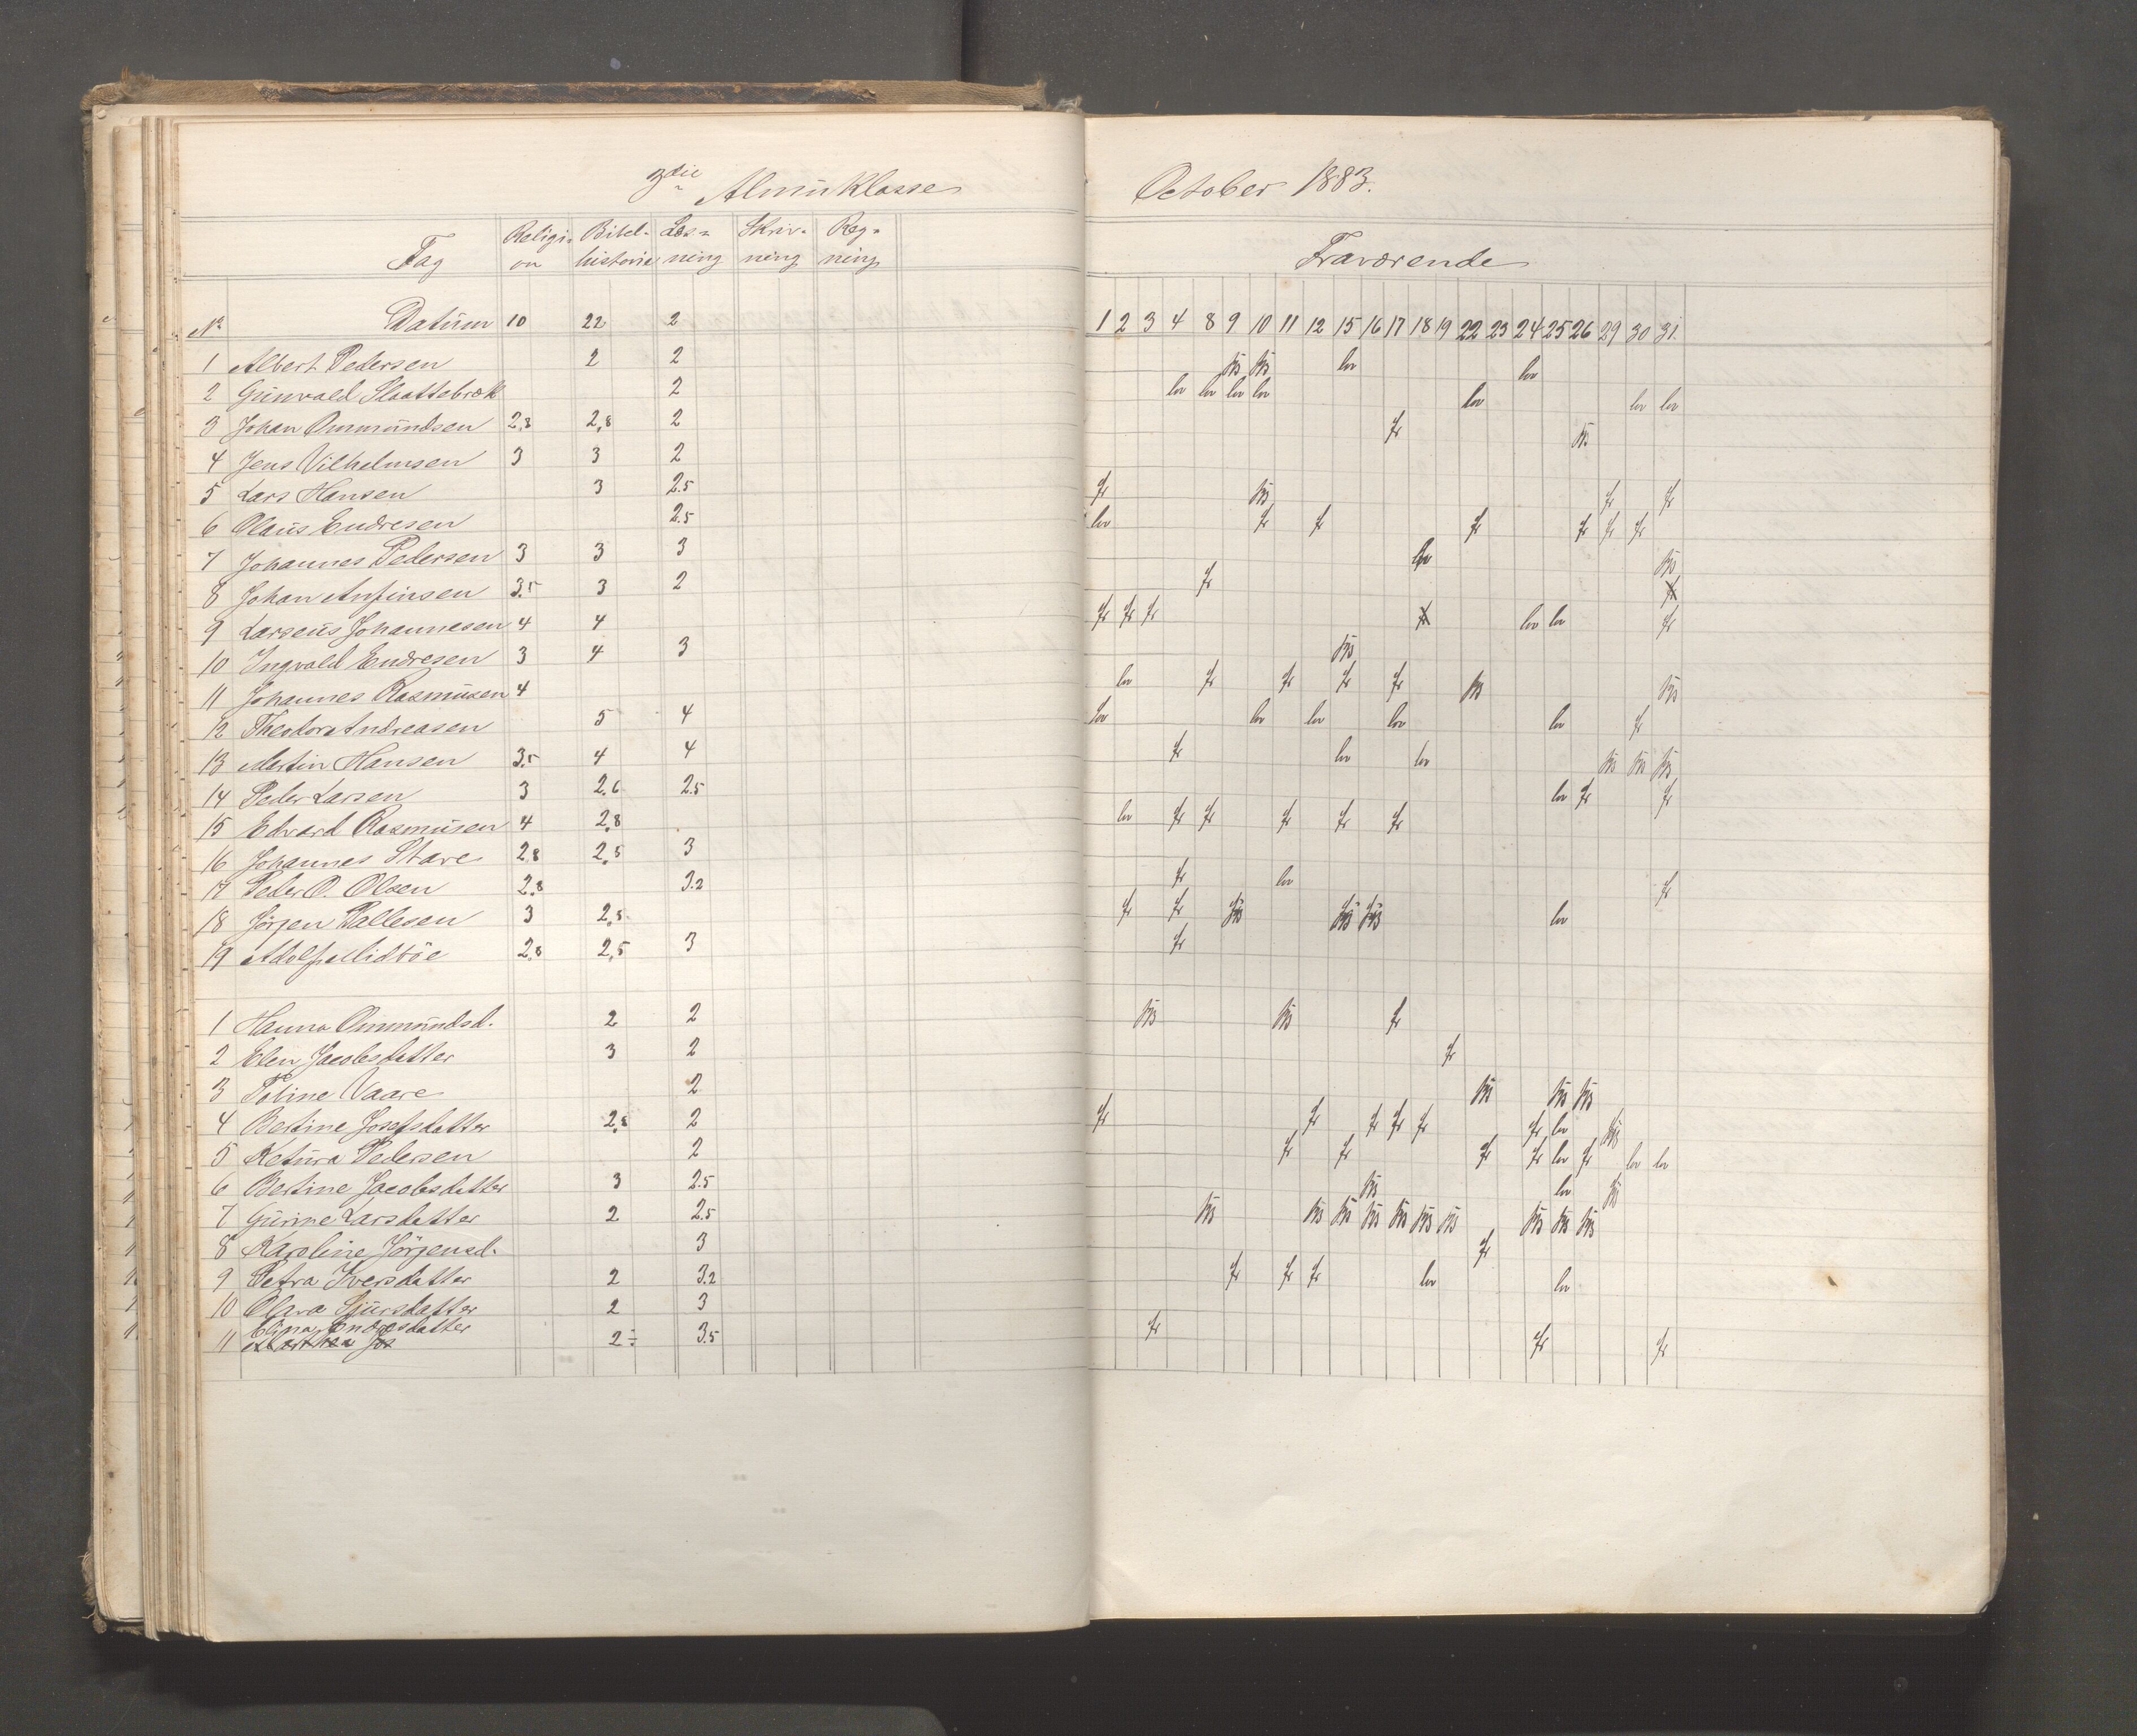 3die Almuklasse
October 1883.
Fag Religi- Bibel- Læs- Skriv- Reg-
on historie ning ning ning
Fraværende
No Datum 10 22 2
1 2 3 4 8 9 10 11 12 15 16 17 18 19 22 23 24 25 26 29 30 31.
1 Albert Pedersen 2 2 lov lov
2 Gunvald Slaattebræk 2 lov lov lov lov lov lov lov
3 Johan Ommundsen 2,8 2,8 2 fr
4 Jens Vilhelmsen 3 3 2
5 Lars Hansen 3 2.5 fr fr fr
6 Olaus Endresen 2.5 lov fr fr fr fr fr fr
7 Johannes Pedersen 3 3 3 lov
8 Johan Anfinsen 3.5 3 2 fr
9 Larseus Johannesen 4 4 fr fr fr lov lov fr
10 Ingvald Endresen 3 4 3
11 Johannes Rasmusen 4 lov fr fr fr fr
12 Theodor Andreasen 5 4 lov lov lov lov lov fr
13 Martin Hansen 3.5 4 4 fr lov lov
14 Peder Larsen 3 2.6 2.5 lov fr fr
15 Edvard Rasmusen 4 2.8 lov fr fr fr fr fr
16 Johannes Stave 2.8 2,5 3
17 Peder O. Olsen 2.8 3.2 fr lov fr
18 Jörgen Pallesen 3 2,8 fr fr lov
19 Adolf Midböe 2.8 2,5 3 fr
1 Hanna Ommundsd. 2 2 fr
2 Elen Jacobsdatter 3 2 fr
3 Poline Vaare 2
4 Bertine Josefsdatter 2.8 2 fr fr fr fr fr fr lov
5 Ketura Pedersen 2 fr fr fr fr lov fr lov lov
6 Bertine Jacobsdatter 3 2.5 lov
7 Gurine Larsdatter 2 2.5
8 Karoline Jörgensd. 3 fr
9 Petra Iversdatter 2 3.2 fr fr fr lov lov
10 Olava Sjursdatter 2 3
Elina Endresdatter
11 2÷ 3.5 fr fr fr